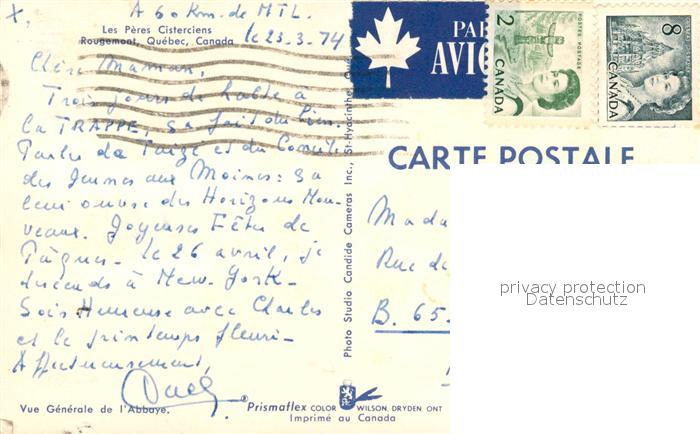 x, A 60 km. de MTL.
Les Pères Cisterciens
Rougemont, Québec, Canada
le 23.3.74
PAR
AVIO
2
POSTES POSTAGE
CANADA
8
CANADA
Chère Maman,
Trois jours de halte à
La TRAPPE, sa fait du bien.
Parler de Taizé et du Concile
des Jeunes aux Moines: sa
leur ouvre des Horizons Nou-
veaux. Joyeuses Fêtes de
Pâques. le 26 avril, je
descends à New-York.
Sois Heureuse avec Charles
et le printemps fleuri.
Affectueusement,
Vue Générale de l'Abbaye.
Photo Studio Candide Cameras Inc., St-Hyacinthe, Qué.
CARTE POSTALE
Mada
Rue de
B. 65.
privacy protection
Datenschutz
Prismaflex COLOR WILSON, DRYDEN, ONT
Imprimé au Canada